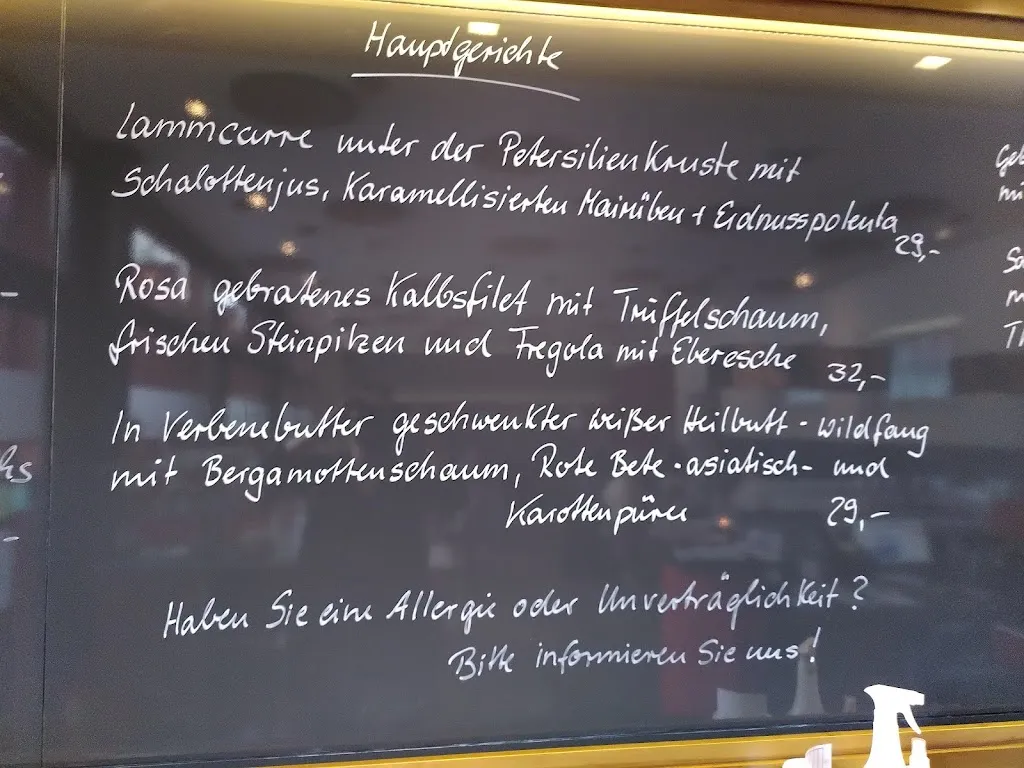 Hauptgerichte
Lammcarre unter der Petersilienkruste mit
Schalottenjus, Karamellisierten Mairüben + Erdnusspolenta
29,-
Rosa gebratenes Kalbsfilet mit Trüffelschaum,
frischen Steinpilzen und Fregola mit Eberesche 32,-
In Verbenebutter geschwenkter weißer Heilbutt - Wildfang
mit Bergamottenschaum, Rote Bete - asiatisch - und
Karottenpüree 29,-
Haben Sie eine Allergie oder Unverträglichkeit?
Bitte informieren Sie uns!